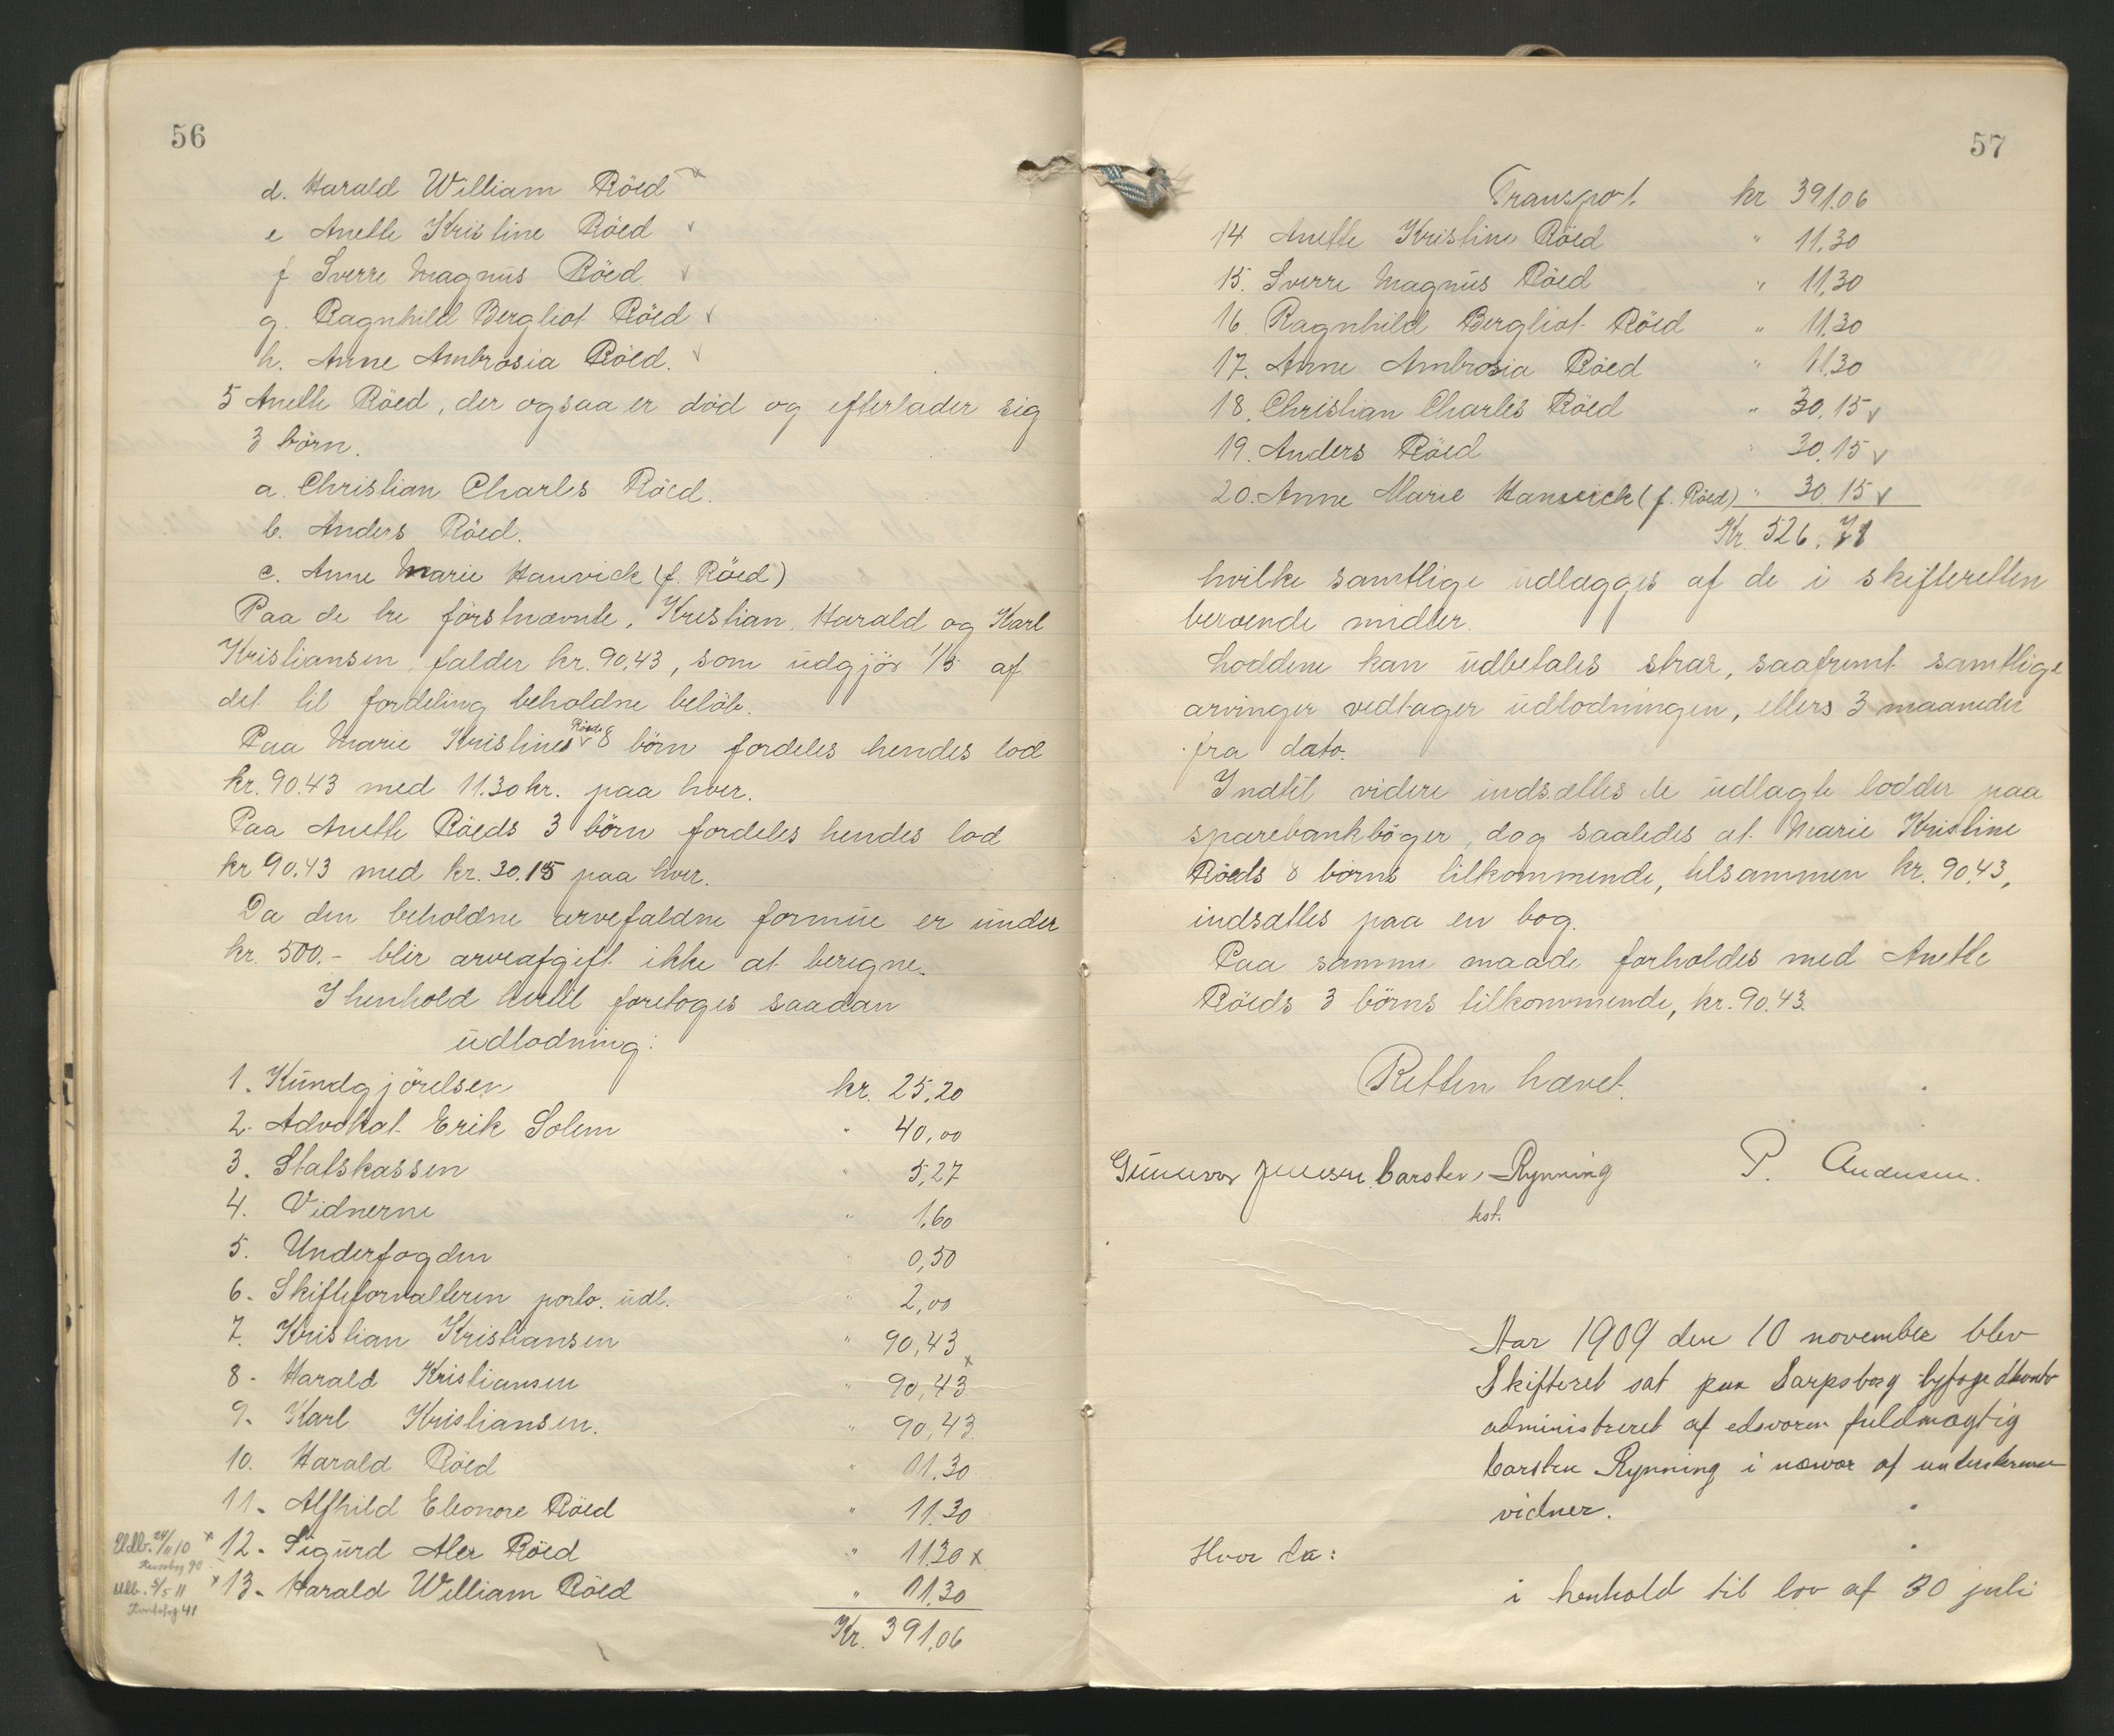 56
d. Harald William Röed
e Anette Kristine Röed
f Sverre Magnus Röed
g. Ragnhild Bergliot Röed
h. Anne Ambrosia Röed.
5 Anette Röed, der ogsaa er död og efterlader sig
3 börn.
a. Christian Charles Röed.
b. Anders Röed.
c. Anne Marie Hanvick (f. Röed)
Paa de tre förstnævnte, Kristian, Harald og Karl
Kristiansen, falder kr. 90,43, som udgjör 1/5 af
det til fordeling beholdne belöb.
Paa Marie Kristines Röeds 8 börn fordeles hendes lod
kr. 90.43 med 11.30 kr. paa hver.
Paa Anette Röeds 3 börn fordeles hendes lod
kr 90.43 med kr. 30.15 paa hver.
Da den beholdne arvefaldne formue er under
kr. 500.- blir arveafgift ikke at beregne.
I henhold hertil foretoges saadan
udlodning:
1. Kundgjörelser kr. 25,20
2. Advokat Erik Solem " 40,00
3. Statskassen " 5,27
4. Vidnerne " 1,60
5. Underfogden " 0,50
6. Skifteforvalteren porto. udl. " 2,00
7. Kristian Kristiansen " 90,43
8. Harald Kristiansen " 90,43 x
9. Karl Kristiansen. " 90,43
10. Harald Röed " 11.30
11. Alfhild Eleonore Röed " 11.30
Udb. 24/11 10 x 12. Sigurd Aler Röed " 11.30 x
90
Udb. 5/5 11 x 13. Harald William Röed " 11.30
41
Kr. 391,06
57
Transport. kr 391.06
14 Anette Kristine Röed " 11,30
15. Sverre Magnus Röed " 11,30
16 Ragnhild Bergliot Röed " 11,30
17. Anne Ambrosia Röed " 11,30
18. Christian Charles Röed " 30.15
19. Anders Röed " 30.15
20. Anne Marie Hanvick (f. Röed) " 30.15
Kr. 526.71
hvilke samtlige udlægges af de i skifteretten
beroende midler.
Loddene kan udbetales strax, saafremt samtlige
arvinger vedtager udlodningen, ellers 3 maaneder
fra dato.
Indtil videre indsættes de udlagte lodder paa
sparebankböger, dog saaledes at Marie Kristine
Röeds 8 börns tilkommende, tilsammen kr. 90,43,
indsættes paa en bog.
Paa samme maade forholdes med Anette
Röeds 3 börns tilkommende, kr. 90.43.
Retten hævet.
Gunnvor Jensen. Carsten Rynning P. Andersen.
kst.
Aar 1909 den 10 november blev
Skifteret sat paa Sarpsborg byfogedkontor
administreret af edsvoren fuldmægtig
Carsten Rynning i nærvær af underskrevne
vidner.
Hvor da:
i henhold til lov af 30 juli